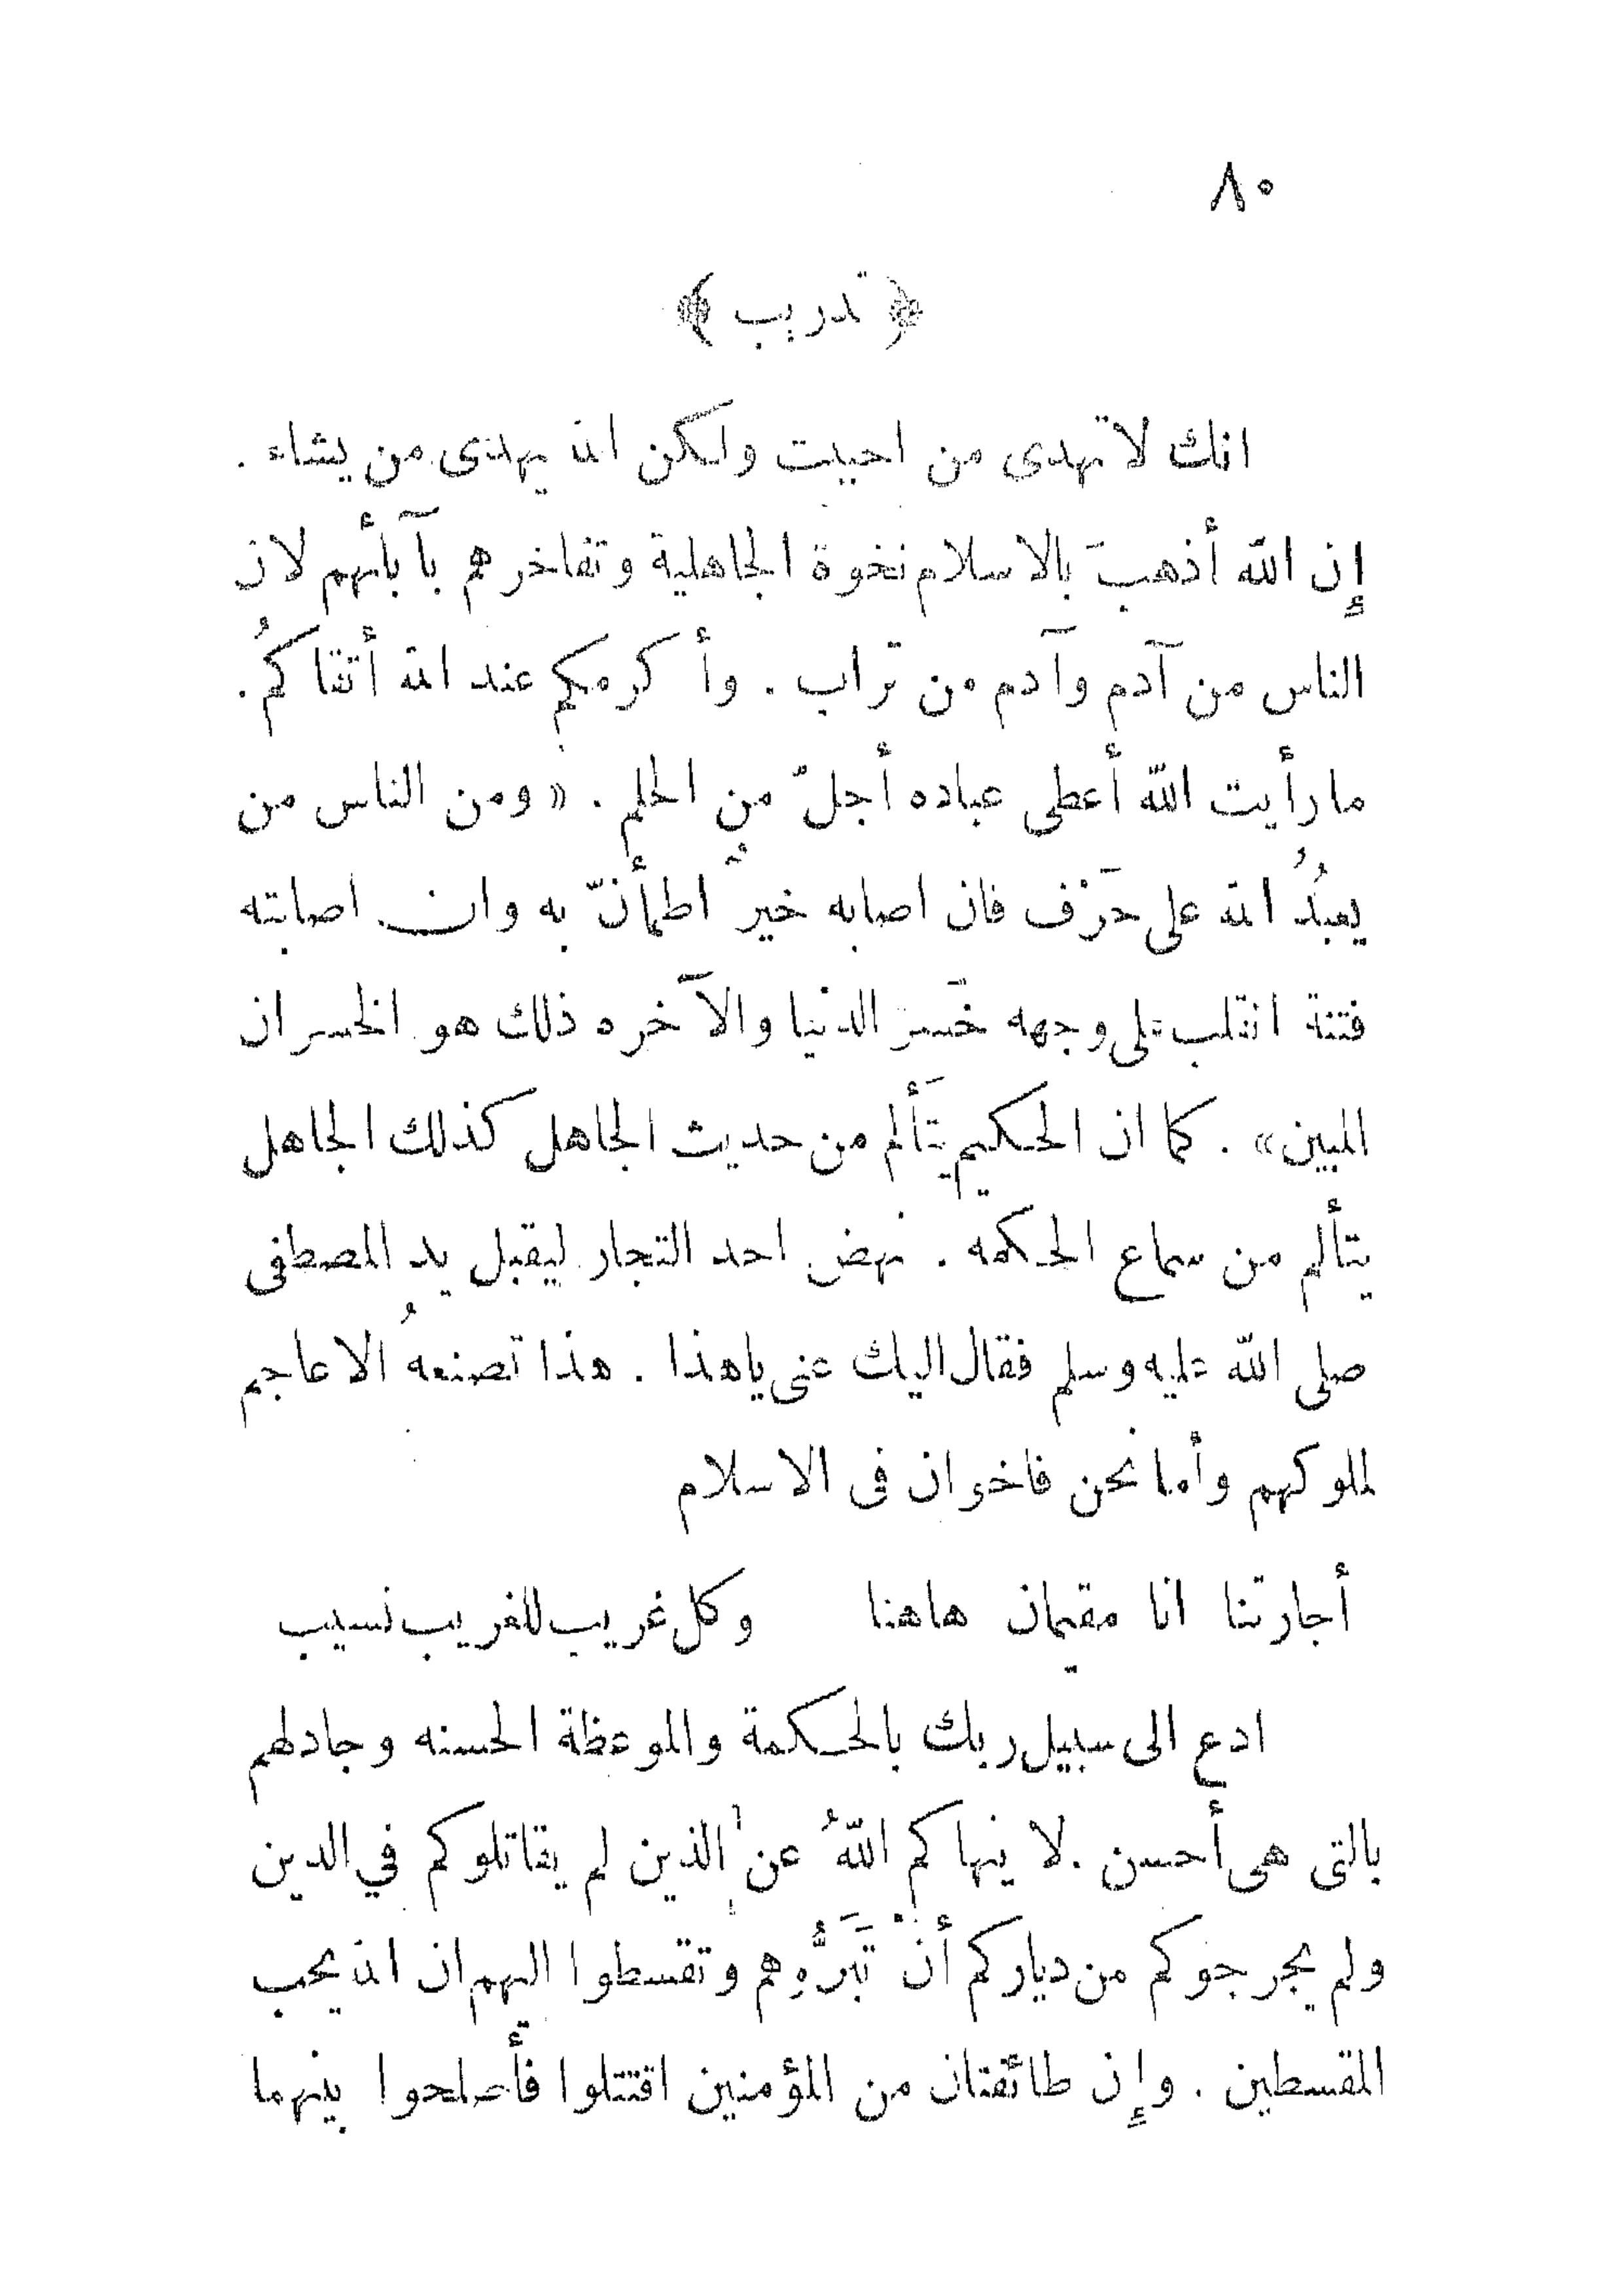 ٨٠
﴿ تدريب ﴾
انك لا تهدى من احببت ولكن الله يهدى من يشاء .
إِن اللّه أذهبَ بالاسلام نخوة الجاهلية وتفاخرهم بآبأئهم لان
الناس من آدم وآدم من تراب . وأكرمكم عند الله أتقاكمُ .
ما رأيت اللّه أعطى عباده أجلّ من الحلم . « ومن الناس من
يعبدُ الله على حَرْف فان اصابه خيرٌ اطمأنّ به وان اصابته
فتنة انقلب على وجهه خَسر الدنيا والآخره ذلك هو الخسران
المبين » . كما ان الحكيم يتَألم من حديث الجاهل كذلك الجاهل
يتألم من سماع الحكمه . نهض احد التجار ليقبل يد المصطفى
صلى اللّه عليه وسلم فقال اليك عنى ياهذا . هذا تصنعهُ الاعاجم
لملوكهم وأما نحن فاخوان فى الاسلام
أجارتنا انا مقيمان هاهنا وكل غريب للغريب نسيب
ادع الى سبيل ربك بالحكمة والموعظة الحسنه وجادلهم
بالتى هى أحسن . لا ينهاكم اللّهُ عن الذين لم يقاتلوكم في الدين
ولم يخرجوكم من دياركم أنْ تَبَرُّوهم وتقسطوا اليهم ان الله يحب
المقسطين . وإِن طائفتان من المؤمنين اقتتلوا فأصلحوا بينهما